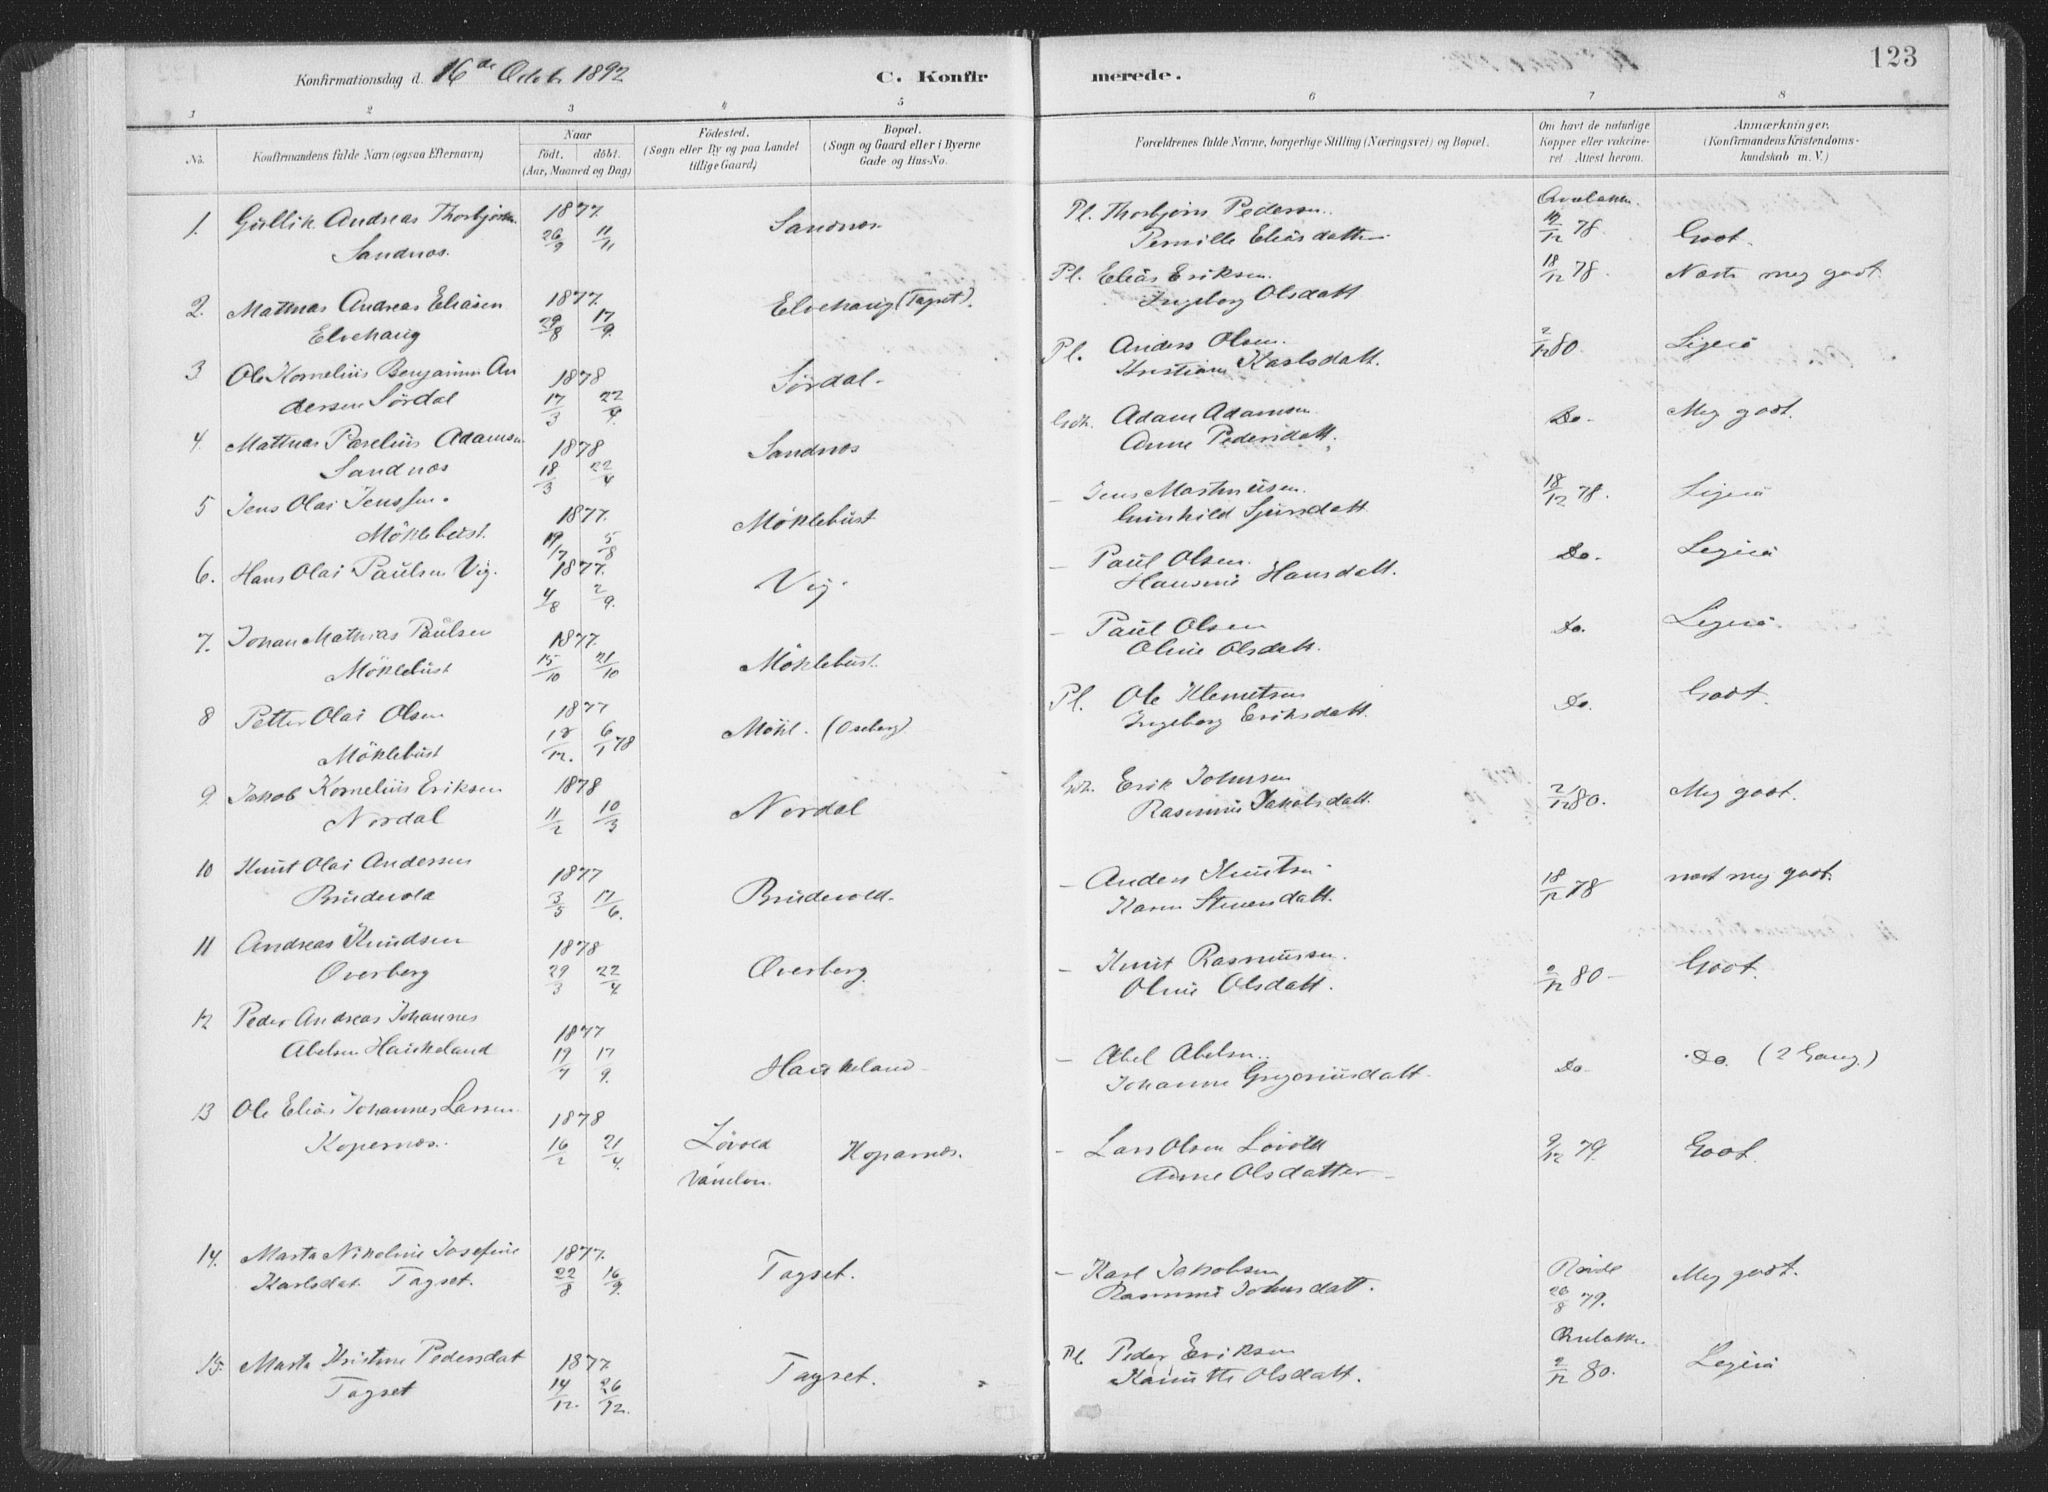 123
Konfirmationsdag d. 16de Octob 1892 C. Konfirmerede.
1 2 3 4 5 6 7 8
No. Konfirmandens fulde Navn (ogsaa Efternavn) Naar födt. döbt. (Aar, Maaned og Dag) Födested. (Sogn eller By og paa Landet tillige Gaard) Bopæl. (Sogn og Gaard eller i Byerne Gade og Hus-No. Forældrenes fulde Navne, borgerlige Stilling (Næringsvei) og Bopæl. Om havt de naturlige Kopper eller vakcineret. Attest herom. Anmærkninger. (Konfirmandens Kristendomskundskab m. V.)
1. Gullik Andreas Thorbjörn 1877 Sandnæs Pl. Thorbjörn Pedersen
Sandnæs. 26/9 11/11 Pernille Eliasdatter 78. Godt.
2. Mathias Andreas Eliasen 1877. Elvehaug (Tagset). Pl. Elias Eriksen 18/12 78. Næsten meg godt
Elvehaug 29/8 17/9. Ingeborg Olsdatt
3 Ole Kornelius Benjamin An 1878 Sördal Pl. Anders Olsen. 2/12 80. Ligesaa
dersen Sördal 17/3 22/4. Karlsdatt.
4. Mattias Adamsen 1878 Sandnæs Adam Adamsen Do. Meg godt.
Sandnæs 18/3 22/4 Anne Pedersdatt.
5 Jens Olai Jenssen. 1877. Möklebust - Jens 18/12 78. Ligesaa
Möklebust. 19/7 5/8 Gunhild Sjursdatt
6. Hans Olai Paulsen Vig. 1877. Vig. - Paul Olsen. Do. Ligesaa
4/8 2/9. Hansine Hansdatt.
7. Johan Mathias Paulsen 1877 Möklebust. - Paul Olsen Do. Ligesaa
Möklebust 15/10 21/10 Oline Olsdatt.
8 Petter Olai Olsen 1877 Mökl. (Oseberg) Pl. Ole Klemetsen Do. Godt.
Möklebust 18/12. 6/1 78 Ingeborg Eriksdatt.
9. Jakob Kornelius Eriksen 1878 Nordal Erik Johnsen 2/12 80. Meg godt.
Nordal 11/2 10/3 Rasmine Jakobsdatt.
10 Knut Olai Andersen 1877 Brudevold. - Anders Knutsen 18/12 78 næst meg godt.
Brudevold 3/5 17/6. Karen Steensdatt.
11 Andreas Knudsen 1878 Överberg. - Knut Rasmussen. 2/12 80 Godt.
Overberg 29/3 22/4. Oline Olsdatt.
12 Peder Andreas Johannes 1877 Haukeland - Abel Abelsen. Do. Do. (2 Gang.)
Abelsen Haukeland 19/7 17/9. Johanne Gregoriusdatt.
13 Ole Elias Johannes Larsen 1878 Lövold Koparnæs. - Lars Olsen Lövold 9/12 79. Godt.
Kopernæs. 16/2 21/4. Vanelven. Anne Olsdatter
14. Marta Nikoline Josefine 1877. Tagset. - Karl Jakobsen Meg godt.
Karlsdat. Tagset. 22/8 16/9. Rasmine Johnsdatt. 26/8 79.
15. Marta Kristine Pedersdat 1877. Tagset. Pl. Peder Eriksen Ligesaa
Tagset 14/12. 26/12. Olsdatt. 2/12 80.